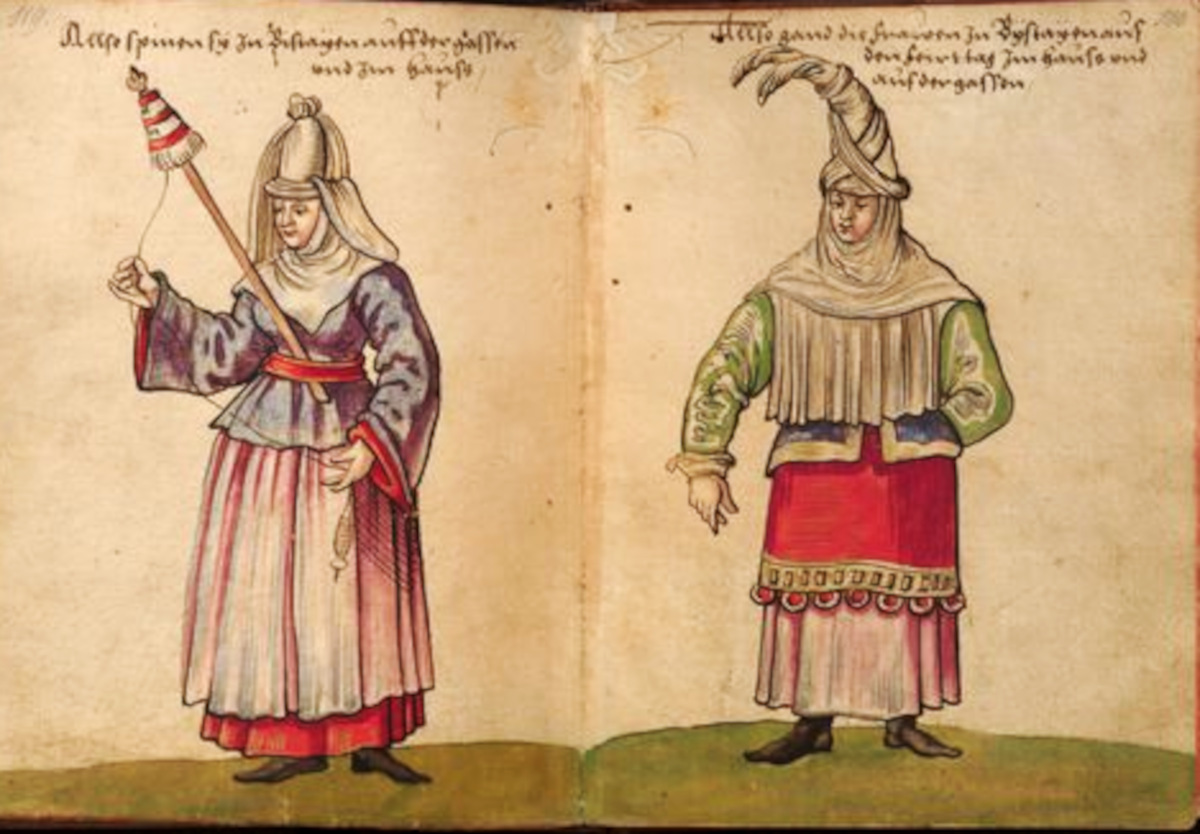 119.
Allso spinen sy zu Pistayen auff der gassen
und Im hauss
Allso gand die frawen zu Bystayen auf
den feirttag Im hauss und
auf der gassen